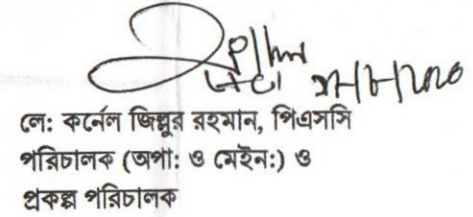 লে: কর্নেল জিল্লুর রহমান, পিএসসি
পরিচালক (অপা: ও মেইন:) ও
প্রকল্প পরিচালক